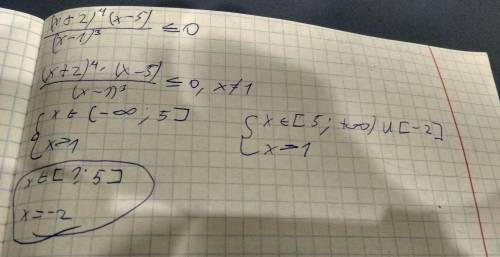 (x+2)⁴(x-5)
(x-1)³ ≤0
(x+2)⁴·(x-5)
(x-1)³ ≤0, x≠1
{ x∈(-∞; 5]
x>1
{ x∈[5; +∞)∪[-2]
x>1
x∈[?; 5]
x=-2